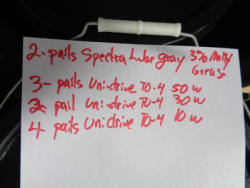 2- pails Spectra Lube gray 3% Moly
Grease
3- pails Uni-drive TO-4 50 w
2 pail Uni-drive TO-4 30 w
4 pails Uni-drive TO-4 10 w